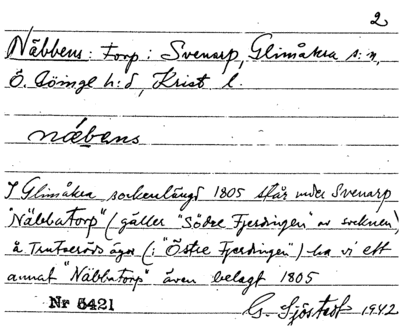 2
Näbbens: torp: Svenarp, Glimåkra s:n,
Ö. Göinge h:d, Krist. l.
näbens
I Glimåkra sockenlängd 1805 står under Svenarp
"Näbbatorp" (gäller "Södre Fjerdingen" av socknen)
å Trutaeröds ägor (i "Östre Fjerdingen") ha vi ett
annat "Näbbatorp" även belagt 1805
Nr 5421
G. Sjöstedt 1942